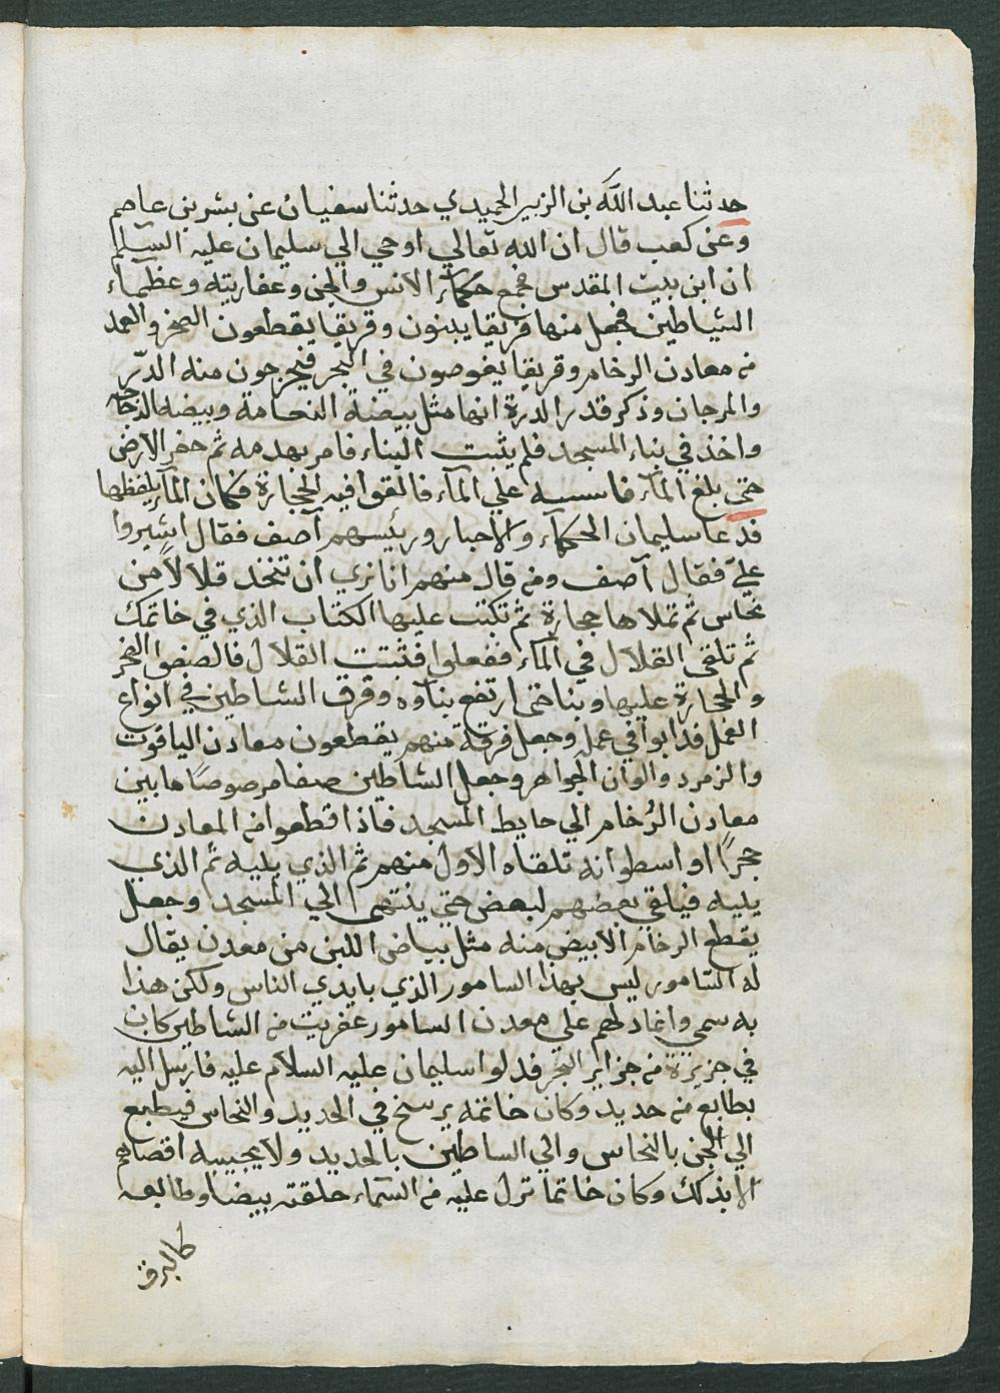 حدثنا عبد الله بن الزبير الحميدي حدثنا سفيان عن بشر بن عاصم
وعن كعب قال ان الله تعالي اوحي الي سليمان عليه السلام
ان ابن بيت المقدس فجمع حكمآء الانس والجن وعفاريته وعظماء
الشياطين فجعل منها فريقا يبنون وفريقا يقطعون الصخر والعمد
من معادن الرخام وفريقا يغوصون في البحر فيخرجون منه الدّر
والمرجان وذكر قدر الدرة انها مثل بيضة النعامة وبيضه الدجاجه
واخذ في بناء المسجد فلم يثبت البناء فامر بهدمه ثم حفر الارض
حتي بلغ المآء فاسسه علي المآء فالقوا فيه الحجارة فكان المآء يلفظها
فدعا سليمان الحكمآء والاحبار ورئيسهم آصف فقال اشيروا
عليّ فقال آصف ومن قال منهم انا نري ان تتخذ قلالاً من
نحاس ثم تملاها حجارة ثم تكتب عليها الكتاب الذي في خاتمك
ثم تلقي القلال في المآء ففعلوا فثبتت القلال فالصقوا الصخر
والحجارة عليها وبنا حتى ارتفع بنآوه وفرق الشاطين في انواع
العمل فدابوا في عمله وجعل فرقة منهم يقطعون معادن الياقوت
والزمرد والوان الجواهر وجعل الشاطين صفا مرصوصًا ما بين
معادن الرُخام الي حايط المسجد فاذا قطعوا من المعادن
حجرًا او اسطوانه تلقاه الاول منهم ثم الذي يليه ثم الذي
يليه فيلقي بعضهم لبعض حتي ينتهي الي المسجد وجعل
يقطع الرخام الابيض منه مثل بياض اللبن من معدن يقال
له السامور ليس بهذا السامور الذي بايدي الناس ولكن هذا
به سمي وانما دلهم علي معدن السامور عفريت من الشاطين كان
في جزيرة من جزاير البحر فدلوا سليمان عليه السلام عليه فارسل اليه
بطابع من حديد وكان خاتمه يرسخ في الحديد والنحاس فيطبع
الي الجن بالنحاس والي الساطين بالحديد ولا يجيبه اقصاهم
الا بذلك وكان خاتما نزل عليه من السماء حلقته بيضا وطابعه
كالبرق